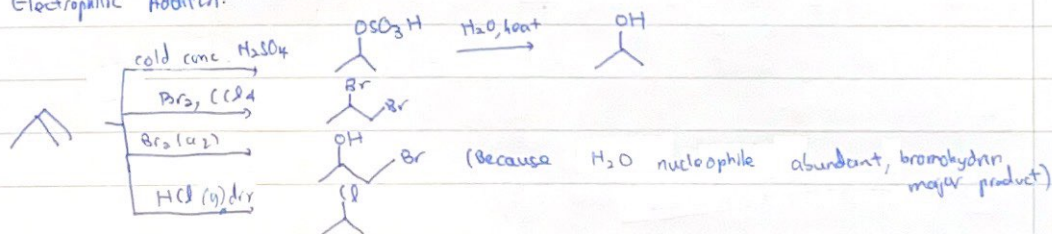 Electrophilic Addition:
cold conc. H₂SO₄
OSO₃H
H₂O, heat
OH
Br₂, CCl₄
Br
Br
Br₂(aq)
OH
Br
(Because H₂O nucleophile abundant, bromohydrin
major product)
HCl (g) dry
Cl